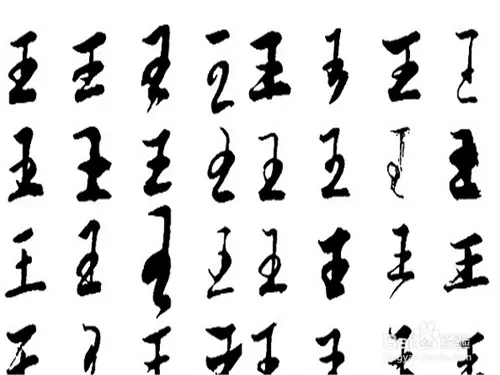 王王王王王王王王
王王王王王王王王
王王王王王王王王
王王王王王王王王
Baidu经验
jingyan.baidu.com